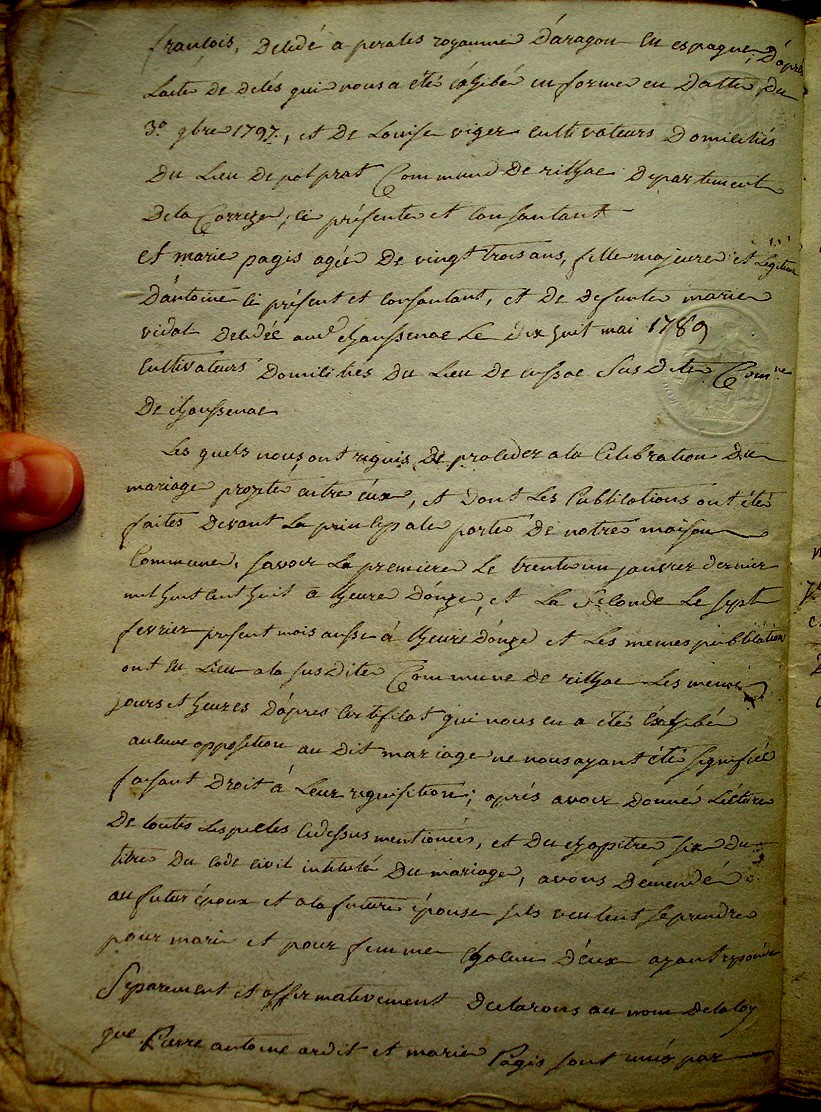 françois, dedédé a perales royaume d'aragon en espagne, d'après
lacte de décés qui nous a été éxhibé en forme en datte du
3e 9bre 1797, et de Louise viger cultivateurs domiciliés
du Lieu de polprat Commune de rilhac departement
de la Correze, ci présente et consantant
et marie pagis agée de vingt trois ans, fille majeure et Légitime
d'antoine ci présent et consantant, et de defunte marie
vidal dedédée aud. chaussenac le dix huit mai 1789
cultivateurs domiciliés du Lieu de cussac Sus dite Comne
de chaussenac
Les quels nous ont requis de proceder a la Célébration du
mariage projeté entre éux, et dont Les Publications ont été
faites devant La principale porte de notre maison
Commune, savoir La premiere Le trente un janvier dernier
mil huit cent huit a lheure d'onze, et La Séconde Le sept
fevrier present mois aussi à lheure d'onze et Les memes publication
ont eu Lieu a la sus dite Commune de rilhac Les memes
jours et heures d'apres Certificat qui nous en a été Exhibé
aucune opposition au dit mariage ne nous ayant été signifiée
faisant Droit à Leur requisition; après avoir Donné Lécture
De toutes Les pieces cidessus mentionées, et du chapitre six du
titre du code civil intitulé Du mariage, avons demendé
au futur époux et a la future épouse sils veulent se prendre
pour mari et pour femme chacun d'éux ayant repondu
Séparement et affirmativement declarons au nom de la loy
que Pierre antoine ardit et marie Pagis sont unis par